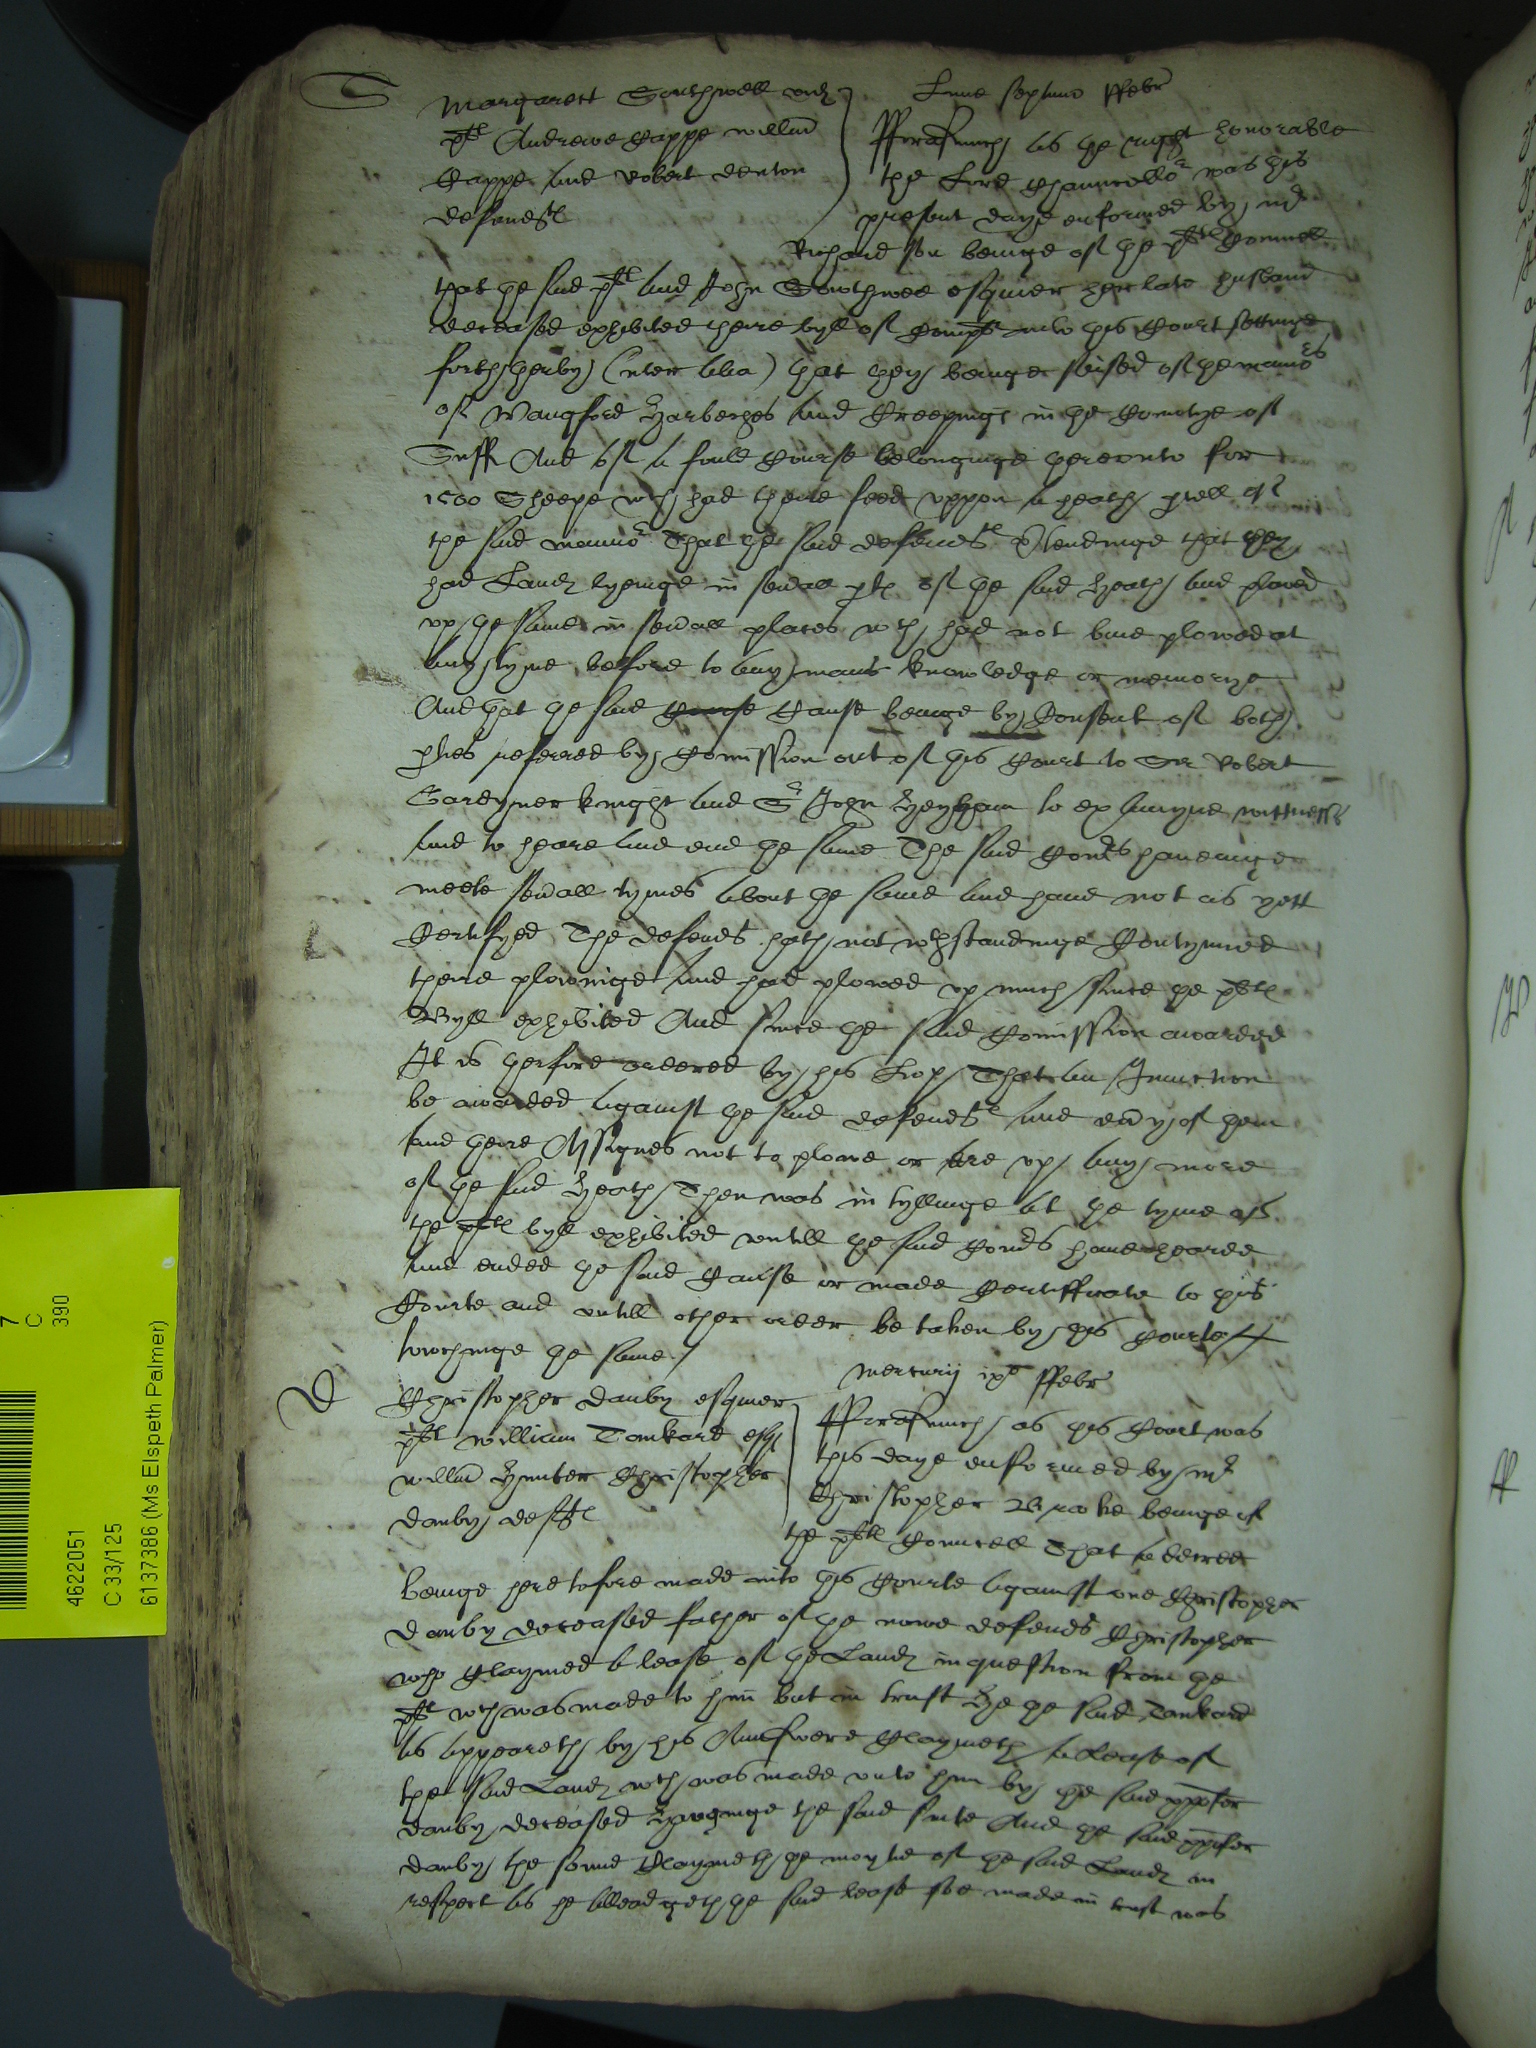 S
Margarett Southwell wid
plt Andrewe Cappe willm
Cappe and Robert Denton
defendtes
Lune septimo ffebr
fforasmuch as the right honorable
the Lord Chauncellor was this
present daye enformed by mr
Richardson beinge of the pltes Councell
that the said plt and John Southwell esquier her late husband
deceased exhibited theire byll of Complt into this Court settinge
forth therby (inter alia) that they beinge seised of the mannors
of Wangford Harberghes and Creepinge in the Countye of
Suff And of a fould Course belonginge therevnto for
1500 Sheepe wch had theire feed vppon a heath pcell of
the said mannor That the said defendtes p̃tendinge that they
had Landes lyeinge in sevall ptes of the said Heath and plowed
vp the same in sevall places wch had not bine plowed at
any tyme before to any mans knowledge or memorye
And that the said Course Cause beinge by Consent of both
pties referred by Comission out of this Court to Sir Robert
Gardyner knight and Sr John Heigham to examyne wittnesses
and to heare and end the same The said Comrs haveinge
meete sevall tymes about the same and have not as yett
Certifyed The defendt hath notwthstandinge Contynued
theire plowinge and had plowed vp much since the pltes
Byll exhibited And since the said Comission awarded
It is therfore ordered by his Lop That an Iniunction
be awarded against the said defendtes and evy of them
and theire Assignes not to plowe or are vp any more
of the said Heath Then was in tyllinge at the tyme of
the pltes byll exhibited vntill the said Comrs have hearde
and ended the said Cause or made Certifficate to this
Courte and vntill other order be taken by this Courte
towchinge the same /
D
Christopher Danby esquier
plt William Tankard esq
willm Hunter Christopher
Danby deftes
Mercurij ixo ffebr
fforasmuch as this Court was
this daye enformed by mr
Christopher Brooke beinge of
the pltes Councell That a decree
beinge heretofore made into this Courte against one Christopher
Danby deceased father of the nowe defendt Christopher
who Claymed a lease of the Landes in question from the
plt wch was made to him but in trust He the said Tankard
as appeareth by his Aunswere Claymeth a Lease of
the said Landes wch was made vnto him by the said xpofer
Danby deceased Hanginge the said suite And the said xpofer
Danby the sonne Claymeth the moytie of the said Landes in
respect as he alleadgeth the said lease soe made in trust was
7
C
390
4622051
C 33/125
6137386 (Ms Elspeth Palmer)